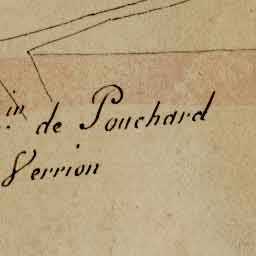 in de Pouchard
Verrion